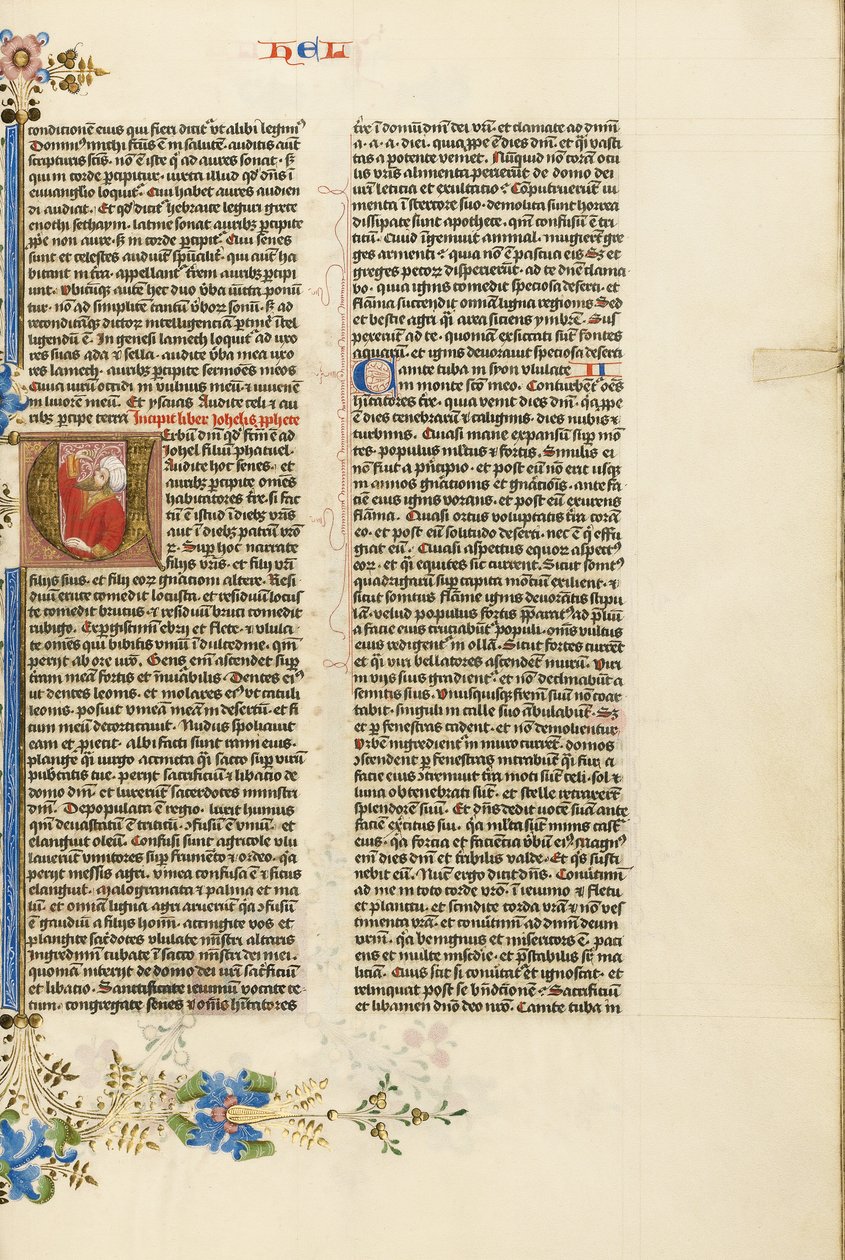 hEL
conditionē eius qui fieri dicit᷑ vt alibi legimꝰ
Dominꝰ michi fcūs ē in salutē. auditis aūt
scripturis scīs. nō ē iste qͥ ad aures sonat. sꝫ
qui in corde ꝑcipitur. iuxta illud qd̓ dn̄s ī
euuanglio loquit᷑. Cui habet aures audien
di audiat. Et qd̓ dicit᷑ hebraice leguri grece
enothi sethaym. latine sonat auribꝫ ꝑcipite
ꝓpe non aure. sꝫ in corde ꝑcipit᷑. Cui senes
sunt et celestes audiūt spūalit᷑. qui aūt ha
bitant in t̄ra. appellant᷑ t̄rem auribꝫ ꝑcipi
unt. Vbicūqꝫ aūte hec duo v̓ba iūcta ponū
tur. nō ad simplicē tantū v̓boꝝ sonū. sꝫ ad
reconditāqꝫ dictoꝝ intelligenciā ꝑtinē ītel
ligendū ē. In genesi lamech loquit᷑ ad vxo
res suas ada ⁊ sella. audite v̓ba mea vxo
res lamech. auribꝫ ꝑcipite sermoēs meos
Cuia virū occidi in vulnus meū ⁊ iuuenē
in liuorē meū. Et ysaias Audite celi ⁊ au
ribꝫ ꝑcipe terra Incipit liber Johelis ꝓphete
Verbū dnī qd̓ fcm̄ ē ad
Johel filiū phatuel.
Audite hoc senes. et
auribꝫ ꝑcipite omēs
habitatores t̄re. si fac
tū ē istud ī diebꝫ vr̄is
aut ī diebꝫ patrū vr̄o
ꝝ. Suꝑ hoc narrate
filijs vr̄is. et filij vr̄i
filijs suis. et filij eoꝝ gn̄ationi altere. Resi
duū eruce comedit locusta. et residuū locus
te comedit brucus. ⁊ residuū bruci comedit
rubigo. Exꝑgiscimī ebrij et flete. ⁊ vlula
te omēs qui bibitis vinū ī dulcedine. qm̄
perijt ab ore vr̄o. Gens em̄ ascendet suꝑ
t̄ram meā fortis et īnu͂abilis. Dentes eiꝰ
ut dentes leonis. et molares eiꝰ vt catuli
leonis. posuit vineā meā in desertū. et fi
cum meū decorticauit. Nudus spoliauit
eam et ꝓiecit. albi facti sunt rami eius.
plange qͣi virgo accincta qͣi sacco suꝑ virū
pubertatis tue. perijt sacrificiū ⁊ libacio de
domo dn̄i. et luxerūt sacerdotes ministri
dn̄i. Depopulata ē regio. luxit humus
qm̄ deuastatū ē triticū. ↄfusū ē vinū. et
elanguit oleū. Confusi sunt agricole vlu
lauerūt vinitores suꝑ frumēto ⁊ ordeo. qͥa
perijt messis agri. vinea confusa ē ⁊ ficus
elanguit. Malogranata ⁊ palma et ma
lū. et omīa ligna agri aruerūt qͥa ↄfusū
ē gaudiū a filijs homī. accingite vos et
plangite sacͤdotes vlulate mīstri altaris
Ingredimī cubate ī sacco mīstri dei mei.
quoniā interijt de domo dei vr̄i sacͥficiū
et libatio. Sanctificate ieiuniū vocate ce
tum. congregate senes ⁊ om̄īs hītatores
t̄re ī domū dn̄i dei vr̄i. et clamate ad dn̄m
a. a. a. diei. quia ꝓpe ē dies dn̄i. et qͣi vasti
tas a potente veniet. Nūquid nō corā ocu
lis vr̄is alimenta perierūt de domo dei
vr̄i leticia et exultacio? Cōputruerūt iu
menta ī stercore suo. demolita sunt horrea
dissipate sunt apothece. qm̄ confusū ē tri
ticū. Cuid īgemuit animal. mugierūt gre
ges armenti? quia nō ē pascua eis. Sꝫ et
greges pecoꝝ disperierūt. ad te dn̄e clama
bo. quia ignis comedit speciosa deserti. et
flāma succendit omīa ligna regionis. Sed
et bestie agri qͣi area sitiens ymbrē. Sus
pexerūt ad te. quoniā exsiccati sūt fontes
aquarū. et ignis deuorauit speciosa deserti
Canite tuba in syon vlulate II
in monte scō meo. Conturbēt᷑ oēs
hītatores t̄re. quia venit dies dn̄i. qͥa ꝓpe
ē dies tenebrarū ⁊ caliginis. dies nubis ⁊
turbinis. Cuasi mane expansū suꝑ mō
tes. populus mltus ⁊ fortis. Similis ei
nō fuit a pͥncipio. et post eū nō erit usqꝫ
in annos gn̄acionis et gn̄acōis. ante fa
ciē eius ignis vorans. et post eū exurens
flāma. Cuasi ortus voluptatis t̄ra corā
eo. et post eū solitudo deserti. nec ē qͥ effu
giat eū. Cuasi aspectus equoꝝ aspectꝰ
eoꝝ. et qͣi equites sic current. Sicut sonitꝰ
quadrigarū suꝑ capita mōtiū exilient. ⁊
sicut sonitus flāme ignis deuorātis stipu
lā. velud populus fortis p̄paratꝰ ad p̄liū
a facie eius cruciabūt᷑ populi. om̄is vultus
eius redigent᷑ in ollā. Sicut fortes currēt
et qͣi viri bellatores ascendēt murū. Viri
in vijs suis gradient᷑. et nō declinabūt a
semitis suis. Vnusquisqꝫ fr̄em suū nō coar
tabit. singuli in calle suo ābulabūt. Sꝫ
et ꝑ fenestras cadent. et nō demolientur
Vrbem ingredient᷑ in muro current. domos
ↄscendent ꝑ fenestras intrabūt qͣi fur. a
facie eius ↄtremuit t̄ra moti sūt celi. sol ⁊
luna obtenebrati sūt. et stelle retraxerūt
splendorē suū. Et dn̄s dedit vocē suā ante
faciē ex̓citus sui. qͥa mlta sūt nimis castͣ
eius. qͥa forcia et faciencia v̓bū eiꝰ. Magnꝰ
em̄ dies dn̄i et t̓ribilis valde. Et qͥs susti
nebit eū. Nūc ergo dicit dn̄s. Conūtimī
ad me in toto corde vr̄o. ī ieiunio ⁊ fletu
et planctu. et scindite corda vr̄a ⁊ nō ves
timenta vr̄a. et conūtimī ad dn̄m deum
vr̄m. qͥa benignus et misericors ē. paci
ens et multe mīcdie. et p̄stabilis suꝑ ma
liciā. Cuis scit si conūtat᷑ et ignoscat. et
relinquat post se bn̄dcōnē? Sacrificiū
et libamen dn̄o deo nr̄o. Canite tuba in